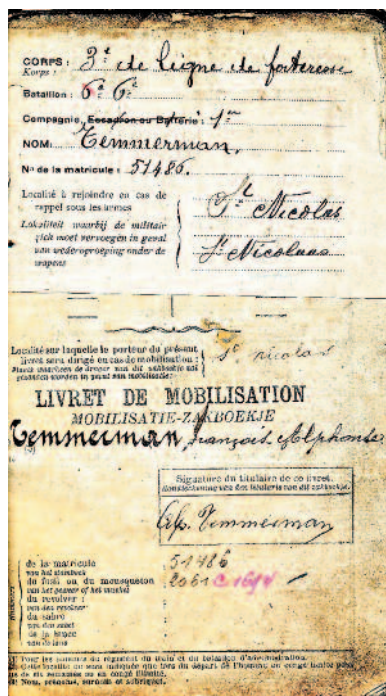 CORPS : 3e de ligne de forteresse
Korps :
Bataillon : 6e 6e
Compagnie, Escadron ou Batterie : 1re
NOM: Temmerman.
No de la matricule : 51486.
Localité à rejoindre en cas de
rappel sous les armes
St Nicolas
Lokaliteit waarbij de militair
zich moet vervoegen in geval
van wederoproeping onder de
wapens
St Nicolaas
Localité sur laquelle le porteur du présent
livret sera dirigé en cas de mobilisation :
St nicolas
LIVRET DE MOBILISATION
MOBILISATIE-ZAKBOEKJE
Temmerman, François Alphonse
Signature du titulaire de ce livret.
Handteekening van den titularis van dit zakboekje.
Alp. Temmerman
de la matricule 51486
van het stamboek
du fusil ou du mousqueton 2061
van het geweer of het musket
du revolver :
van den revolver
du sabre
van den sabel
de la lance
van de lans
(4) Nom, prénoms, surnom et sobriquet.